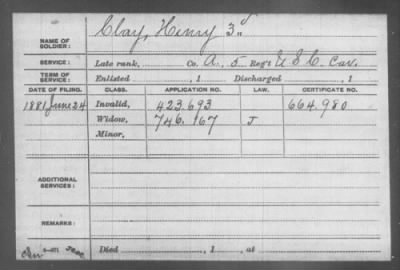 NAME OF SOLDIER: Clay, Henry 3d
SERVICE: Late rank, Co. A, 5 Reg't U S C Cav.
TERM OF SERVICE: Enlisted , 1 Discharged , 1
DATE OF FILING. CLASS. APPLICATION NO. LAW. CERTIFICATE NO.
1881 June 24 Invalid, 423.693 664.980
Widow, 746.167 J
Minor,
ADDITIONAL SERVICES:
REMARKS:
Died , 1 , at